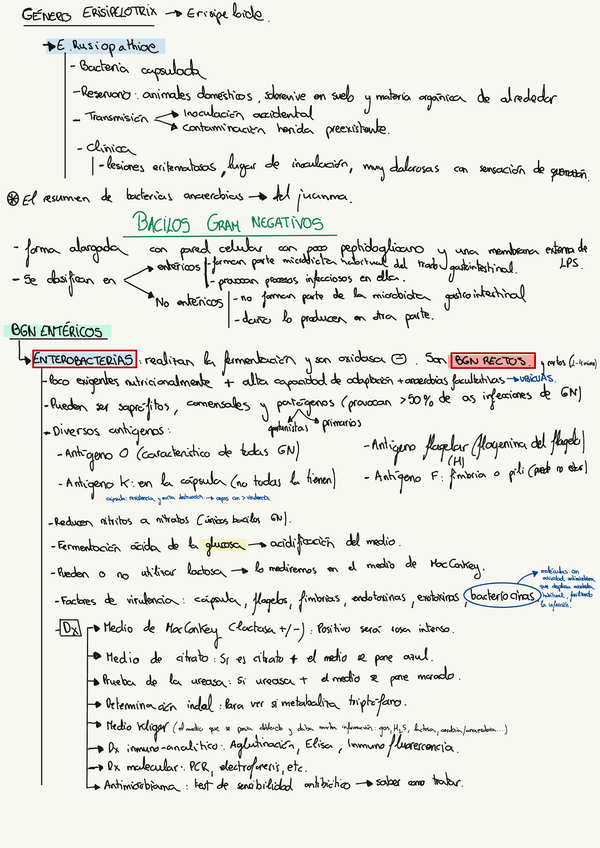 GÉNERO ERISIPELOTRIX → Erisipeloide.
→ E. Rusiopathiae
- Bacteria capsulada
- Reservorio: animales domésticos, sobrevive en suelo y materia orgánica de alrededor
- Transmisión → Inoculación accidental
→ Contaminación herida preexistente.
- Clínica
- lesiones eritematosas, lugar de inoculación, muy dolorosas con sensación de quemazón.
* El resumen de bacterias anaerobias → del juanma.
BACILOS GRAM NEGATIVOS
- forma alargada con pared celular con poco peptidoglicano y una membrana externa de LPS.
- Se clasifican en → entéricos - forman parte microbiota habitual del tracto gastointestinal.
- provocan procesos infecciosos en ella.
→ No entéricos - no forman parte de la microbiota gastrointestinal
- daño lo producen en otra parte.
BGN ENTÉRICOS
→ ENTEROBACTERIAS: realizan la fermentación y son oxidasa ⊖. Son BGN RECTOS. y cortos (2-4 micras)
- Poco exigentes nutricionalmente + alta capacidad de adaptación + anaerobias facultativas → UBICUAS.
- Pueden ser saprófitos, comensales y patógenos (provocan >50% de as infeciones de GN)
oportunistas primarios
- Diversos antígenos:
- Antígeno O (característico de todas GN)
- Antígeno flagelar (flagenina del flagelo)
(H)
- Antígeno K: en la cápsula (no todas la tienen)
- Antígeno F: fimbria o pili (puede no estar)
cápsula: resistencia y evita destrucción → cepas con > virulencia
- Reducen nitritos a nitratos (únicos bacilos GN).
- Fermentación ácida de la glucosa → acidificación del medio.
- Pueden o no utilizar lactosa → lo mediremos en el medio de MacConkey.
- Factores de virulencia: cápsula, flagelos, fimbrias, endotoxinas, exotoxinas, bacteriocinas
→ moléculas con actividad antimicrobiana que desplazan microbiota habitual, facilitando la infección.
- Dx → Medio de MacConkey (lactasa +/-): Positivo será rosa intenso.
→ Medio de citrato: Si es citrato + el medio se pone azul.
→ Prueba de la ureasa: si ureasa + el medio se pone morado.
→ Determinación indol: Para ver si metaboliza triptófano.
→ Medio Kligar (el medio que se ponía difarcado y daba mucha información: gas, H₂S, lactosa, aerobia/anaerobia...)
→ Dx inmuno-analítico: Aglutinación, Elisa, Inmunofluorescencia.
→ Dx molecular: PCR, electroforesis, etc.
→ Antimicrobiama: test de sensibilidad antibiótico → saber como tratar.